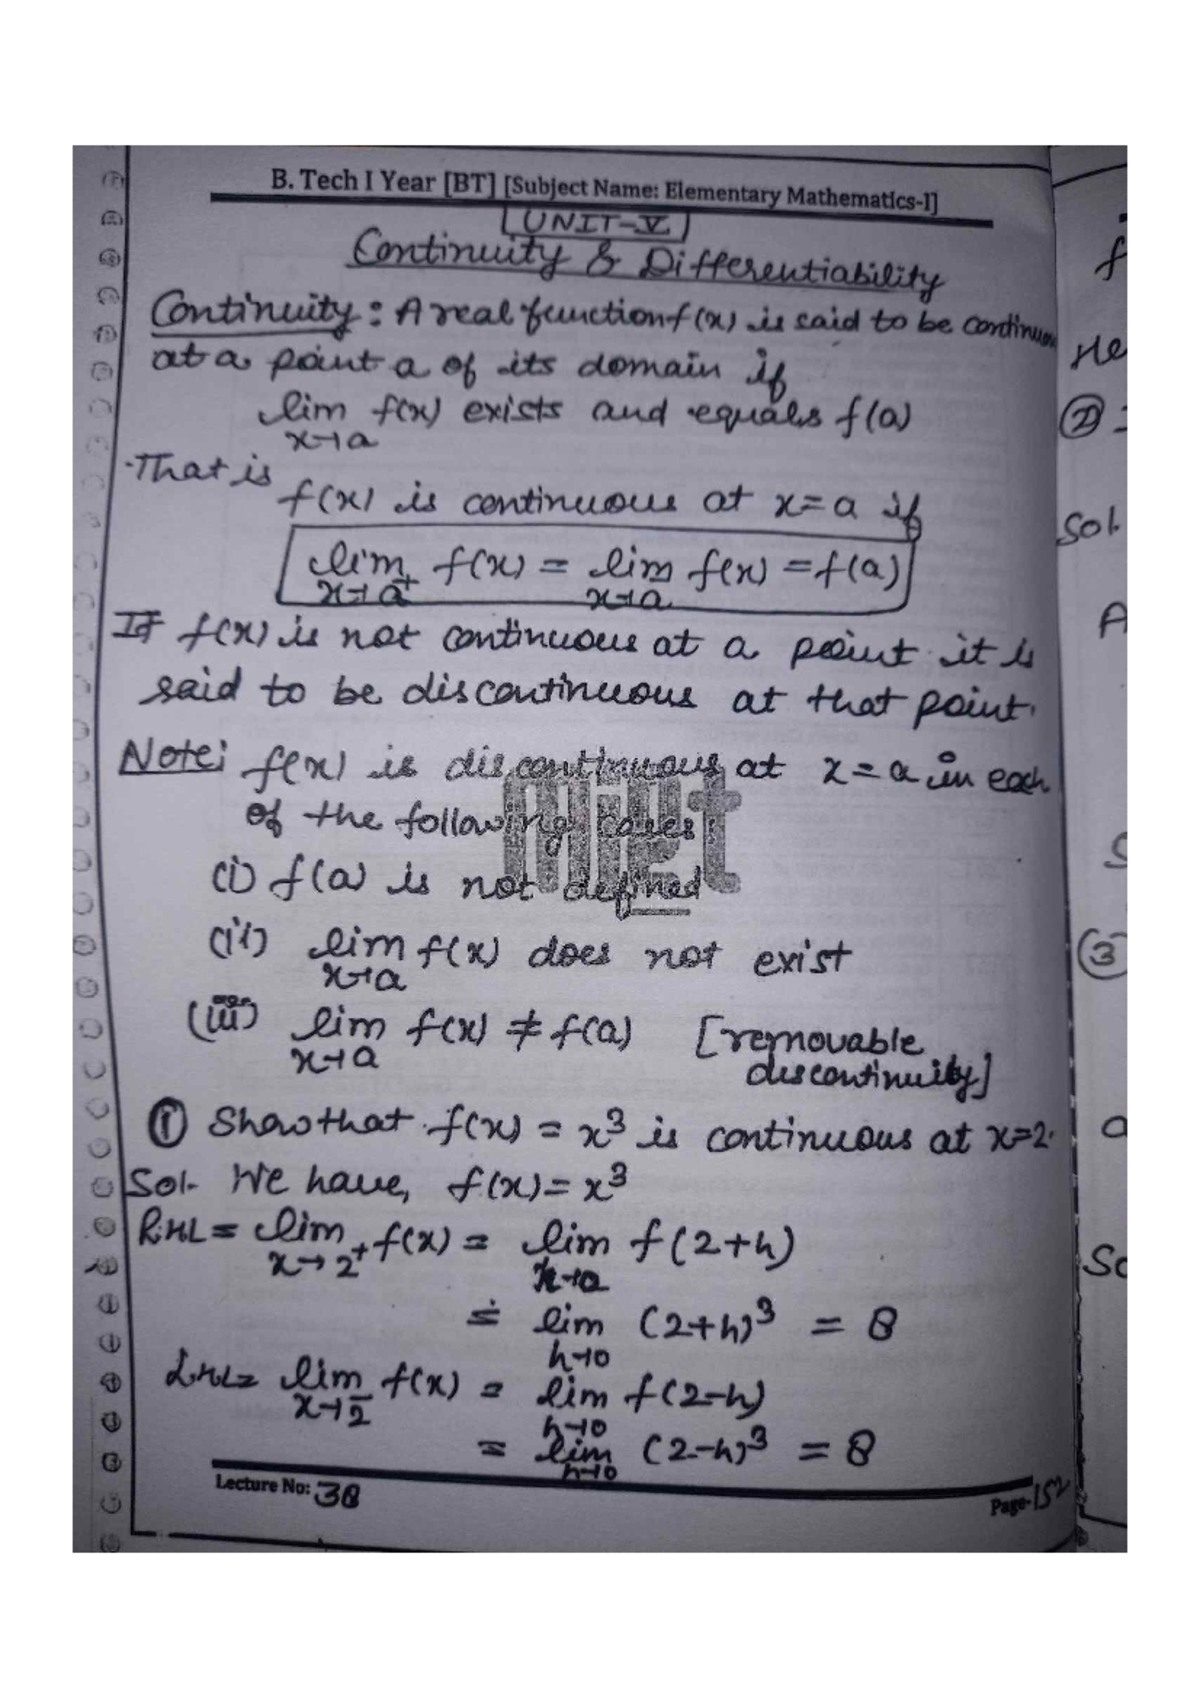 B. Tech I Year [BT] [Subject Name: Elementary Mathematics-I]
UNIT-V
Continuity & Differentiability
Continuity: A real function f(x) is said to be continuou
at a point a of its domain if
lim f(x) exists and equals f(a)
x→a
That is
f(x) is continuous at x=a if
lim f(x) = lim f(x) = f(a)
x→a⁺ x→a
If f(x) is not continuous at a point it is
said to be discontinuous at that point.
Note: f(x) is discontinuous at x=a in each
of the following cases:
miet
(i) f(a) is not defined
(ii) lim f(x) does not exist
x→a
(iii) lim f(x) ≠ f(a) [removable
x→a discontinuity]
① Show that f(x) = x³ is continuous at x=2.
Sol. We have, f(x) = x³
R.HL = lim f(x) = lim f(2+h)
x→2⁺
= lim (2+h)³ = 8
h→0
LHL= lim f(x) = lim f(2-h)
x→2⁻ h→0
= lim (2-h)³ = 8
h→0
Lecture No: 38
Page-152
f
He
②
Sol.
A
S
③
a
So